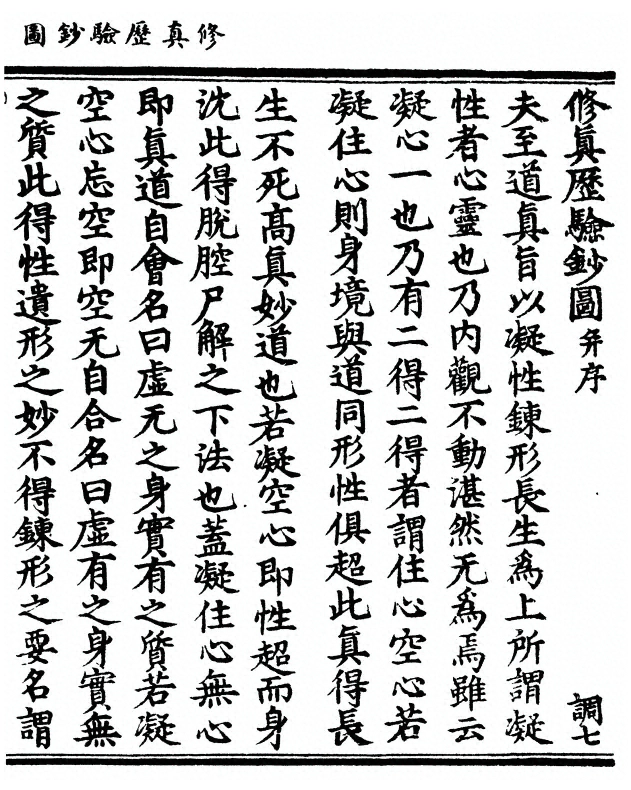 修真歷驗鈔圖
修真歷驗鈔圖并序 調七
夫至道真旨以凝性鍊形長生為上所謂凝
性者心靈也乃內觀不動湛然无為焉雖云
凝心一也乃有二得二得者謂住心空心若
凝住心則身境與道同形性俱超此真得長
生不死高真妙道也若凝空心即性超而身
沈此得脫腔尸解之下法也蓋凝住心無心
即真道自會名曰虛无之身實有之質若凝
空心忘空即空无自合名曰虛有之身實無
之質此得性遺形之妙不得鍊形之要名謂